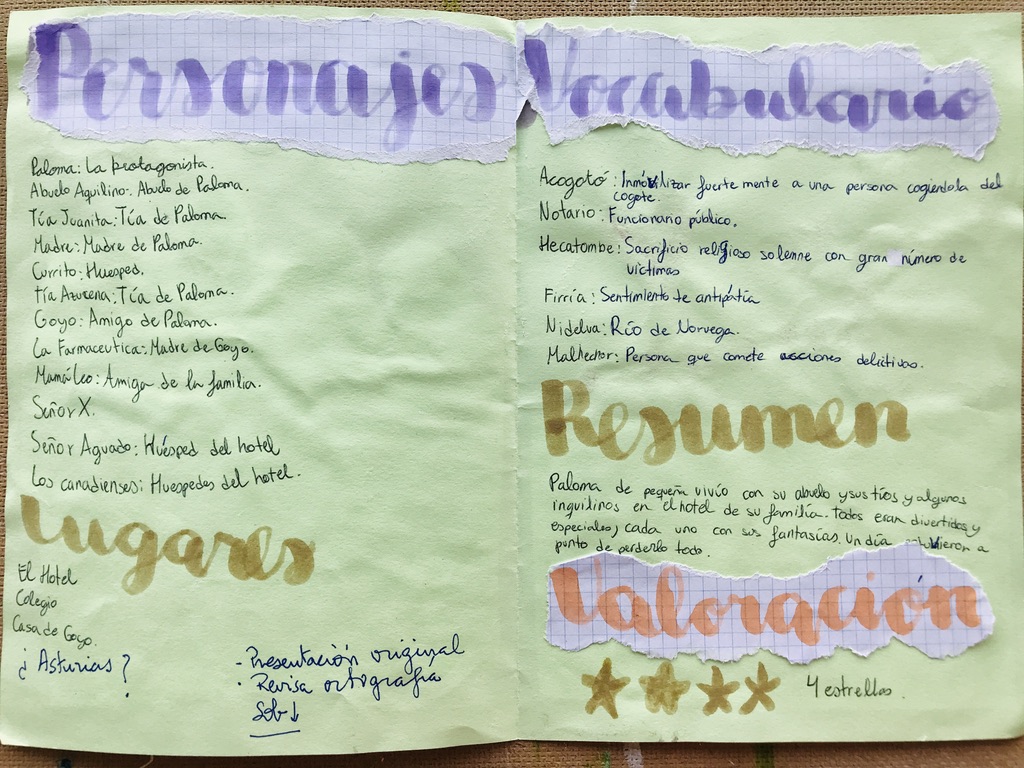 Personajes
Paloma: La protagonista.
Abuelo Aquilino: Abuelo de Paloma.
Tía Juanita: Tía de Paloma.
Madre: Madre de Paloma.
Currito: Huesped.
tía Azucena: Tía de Paloma.
Goyo: Amigo de Paloma.
La Farmaceutica: Madre de Goyo.
Mamá Leo: Amiga de la familia.
Señor X.
Señor Aguado: Huésped del hotel
Los canadienses: Huespedes del hotel.
Lugares
El Hotel
Colegio
Casa de Goyo.
¿Asturias?
- Presentación original
- Revisa ortografía
Sob↓
Vocabulario
Acogotó: Inmóvilizar fuerte mente a una persona cogiendola del
cogote.
Notario: Funcionario público.
Hecatombe: Sacrificio religioso solenne con gran número de
victimas
Firria: Sentimiento de antipátia
Nidelva: Río de Norvega.
Malhechor: Persona que comete acciones delictivas.
Resumen
Paloma de pequeña vivío con su abuelo y sus tíos y algunos
inquilinos en el hotel de su familia. todos eran divertidos y
especiales, cada uno con sus fantasías. Un día estuvieron a
punto de perderlo todo.
Valoración
4 estrellas.